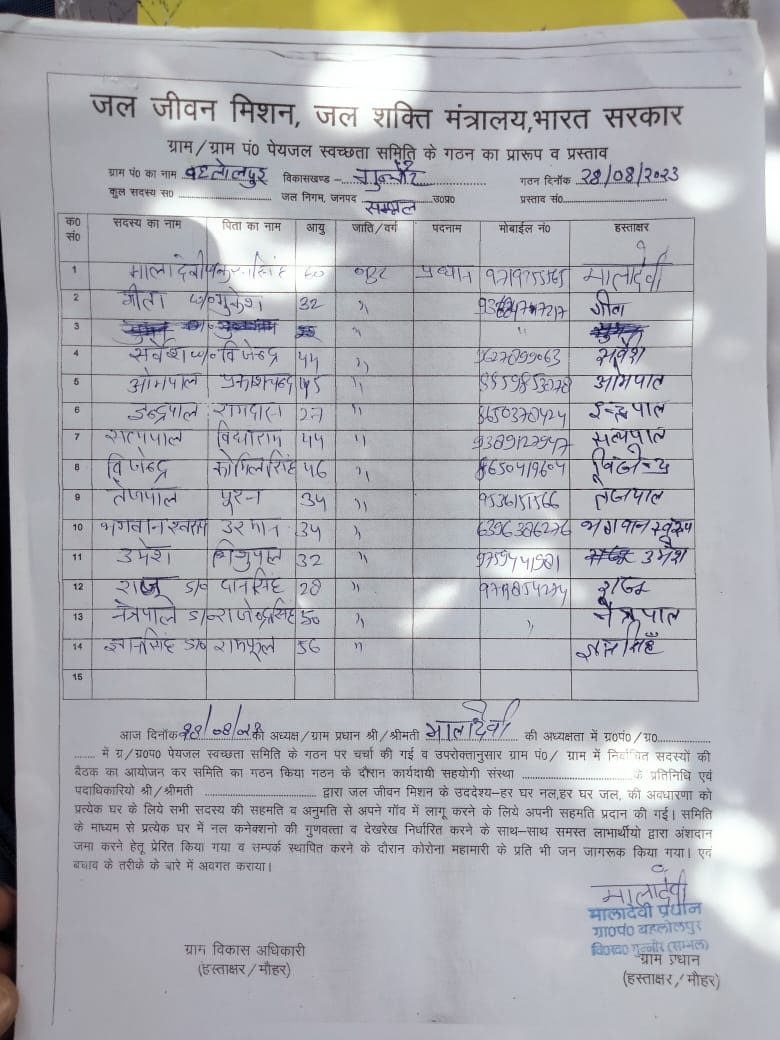 जल जीवन मिशन, जल शक्ति मंत्रालय,भारत सरकार
ग्राम/ग्राम पं0 पेयजल स्वच्छता समिति के गठन का प्रारूप व प्रस्ताव
ग्राम पं0 का नाम बहलोलपुर विकासखण्ड -- गुन्नौर गठन दिनॉक 28/08/2023
कुल सदस्य स0 जल निगम, जनपद सम्भल उ0प्र0 प्रस्ताव सं0
क0 सं0 सदस्य का नाम पिता का नाम आयु जाति/वर्ग पदनाम मोबाईल नं0 हस्ताक्षर
1 मालादेवी प्रधान मालादेवी
2 गीता w/o मुकेश 32 " गीता
3 "
4 सर्वेश w/o विजेन्द्र 44 " सर्वेश
5 ओमपाल प्रकाशचन्द्र 45 " ओमपाल
6 इन्द्रपाल रामदास 27 " 8650378424 इन्द्रपाल
7 सत्यपाल विद्याराम 44 " सत्यपाल
8 विजेन्द्र 46 " 8650419604 विजेन्द्र
9 तेजपाल पूरन 34 " तेजपाल
10 भगवान स्वरूप 34 " 6396386276 भगवान स्वरूप
11 उमेश शिशुपाल 32 " उमेश
12 राजू S/o दानसिंह 28 " राजू
13 नेत्रपाल S/o राजेन्द्रसिंह 50 " " नेत्रपाल
14 ज्ञानसिंह S/o 56 " ज्ञानसिंह
15
आज दिनॉक 28/08/23 की अध्यक्ष/ग्राम प्रधान श्री/श्रीमती मालादेवी की अध्यक्षता में ग्र0पं0/ग्र0
में ग्र/ग्र0प0 पेयजल स्वच्छता समिति के गठन पर चर्चा की गई व उपरोक्तानुसार ग्राम पं0/ ग्राम में निर्वाचित सदस्यों की
बैठक का आयोजन कर समिति का गठन किया गठन के दौरान कार्यदायी सहयोगी संस्था के प्रतिनिधि एवं
पदाधिकारियो श्री/श्रीमती द्वारा जल जीवन मिशन के उददेश्य-हर घर नल,हर घर जल, की अवधारणा को
प्रत्येक घर के लिये सभी सदस्य की सहमति व अनुमति से अपने गॉव में लागू करने के लिये अपनी सहमति प्रदान की गई। समिति
के माध्यम से प्रत्येक घर में नल कनेक्शनो की गुणवत्ता व देखरेख निर्धारित करने के साथ-साथ समस्त लाभार्थीयो द्वारा अंशदान
जमा करने हेतू प्रेरित किया गया व सम्पर्क स्थापित करने के दौरान कोरोना महामारी के प्रति भी जन जागरूक किया गया। एवं
बचाव के तरीके के बारे में अवगत कराया।
मालादेवी
मालादेवी प्रधान
ग्रा0पं0 बहलोलपुर
वि0ख0 गुन्नौर (सम्भल)
ग्राम विकास अधिकारी ग्राम प्रधान
(हस्ताक्षर/मौहर) (हस्ताक्षर/मौहर)